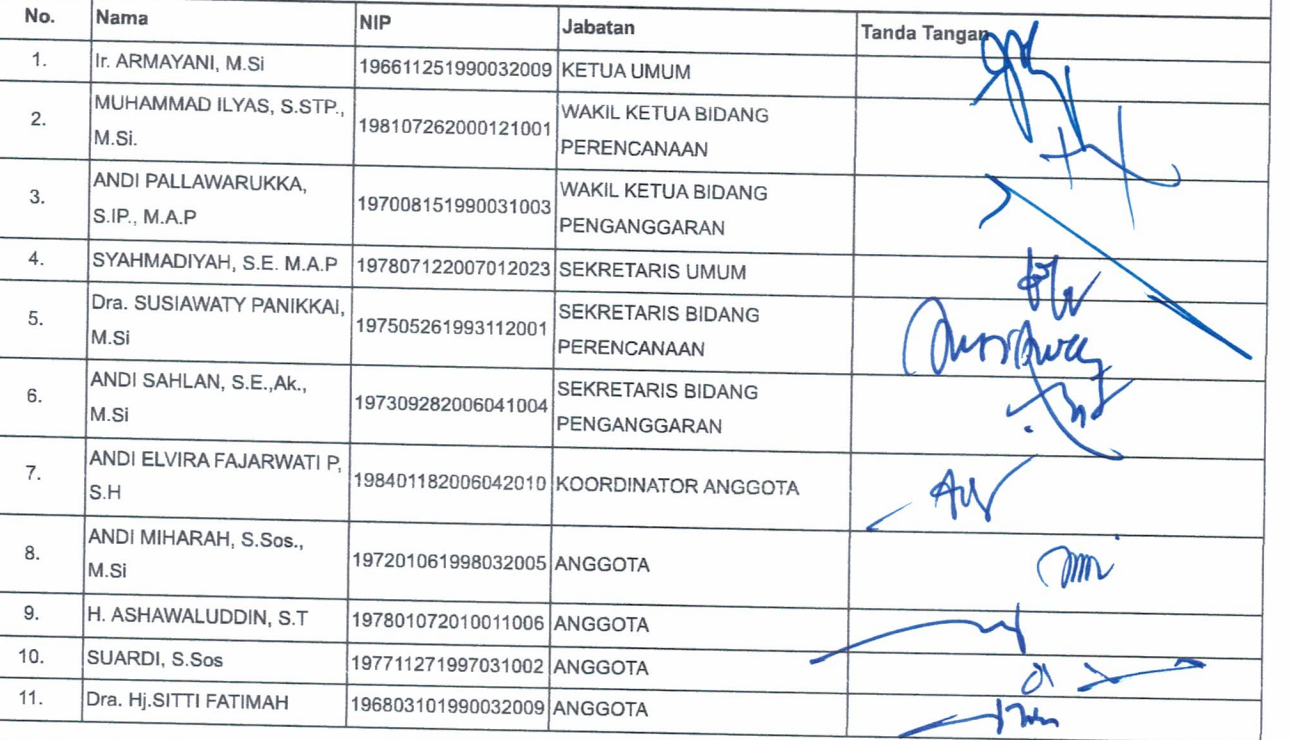 No. Nama NIP Jabatan Tanda Tangan
1. Ir. ARMAYANI, M.Si 196611251990032009 KETUA UMUM
2. MUHAMMAD ILYAS, S.STP., M.Si. 198107262000121001 WAKIL KETUA BIDANG PERENCANAAN
3. ANDI PALLAWARUKKA, S.IP., M.A.P 197008151990031003 WAKIL KETUA BIDANG PENGANGGARAN
4. SYAHMADIYAH, S.E. M.A.P 197807122007012023 SEKRETARIS UMUM
5. Dra. SUSIAWATY PANIKKAI, M.Si 197505261993112001 SEKRETARIS BIDANG PERENCANAAN
6. ANDI SAHLAN, S.E.,Ak., M.Si 197309282006041004 SEKRETARIS BIDANG PENGANGGARAN
7. ANDI ELVIRA FAJARWATI P, S.H 198401182006042010 KOORDINATOR ANGGOTA
8. ANDI MIHARAH, S.Sos., M.Si 197201061998032005 ANGGOTA
9. H. ASHAWALUDDIN, S.T 197801072010011006 ANGGOTA
10. SUARDI, S.Sos 197711271997031002 ANGGOTA
11. Dra. Hj.SITTI FATIMAH 196803101990032009 ANGGOTA